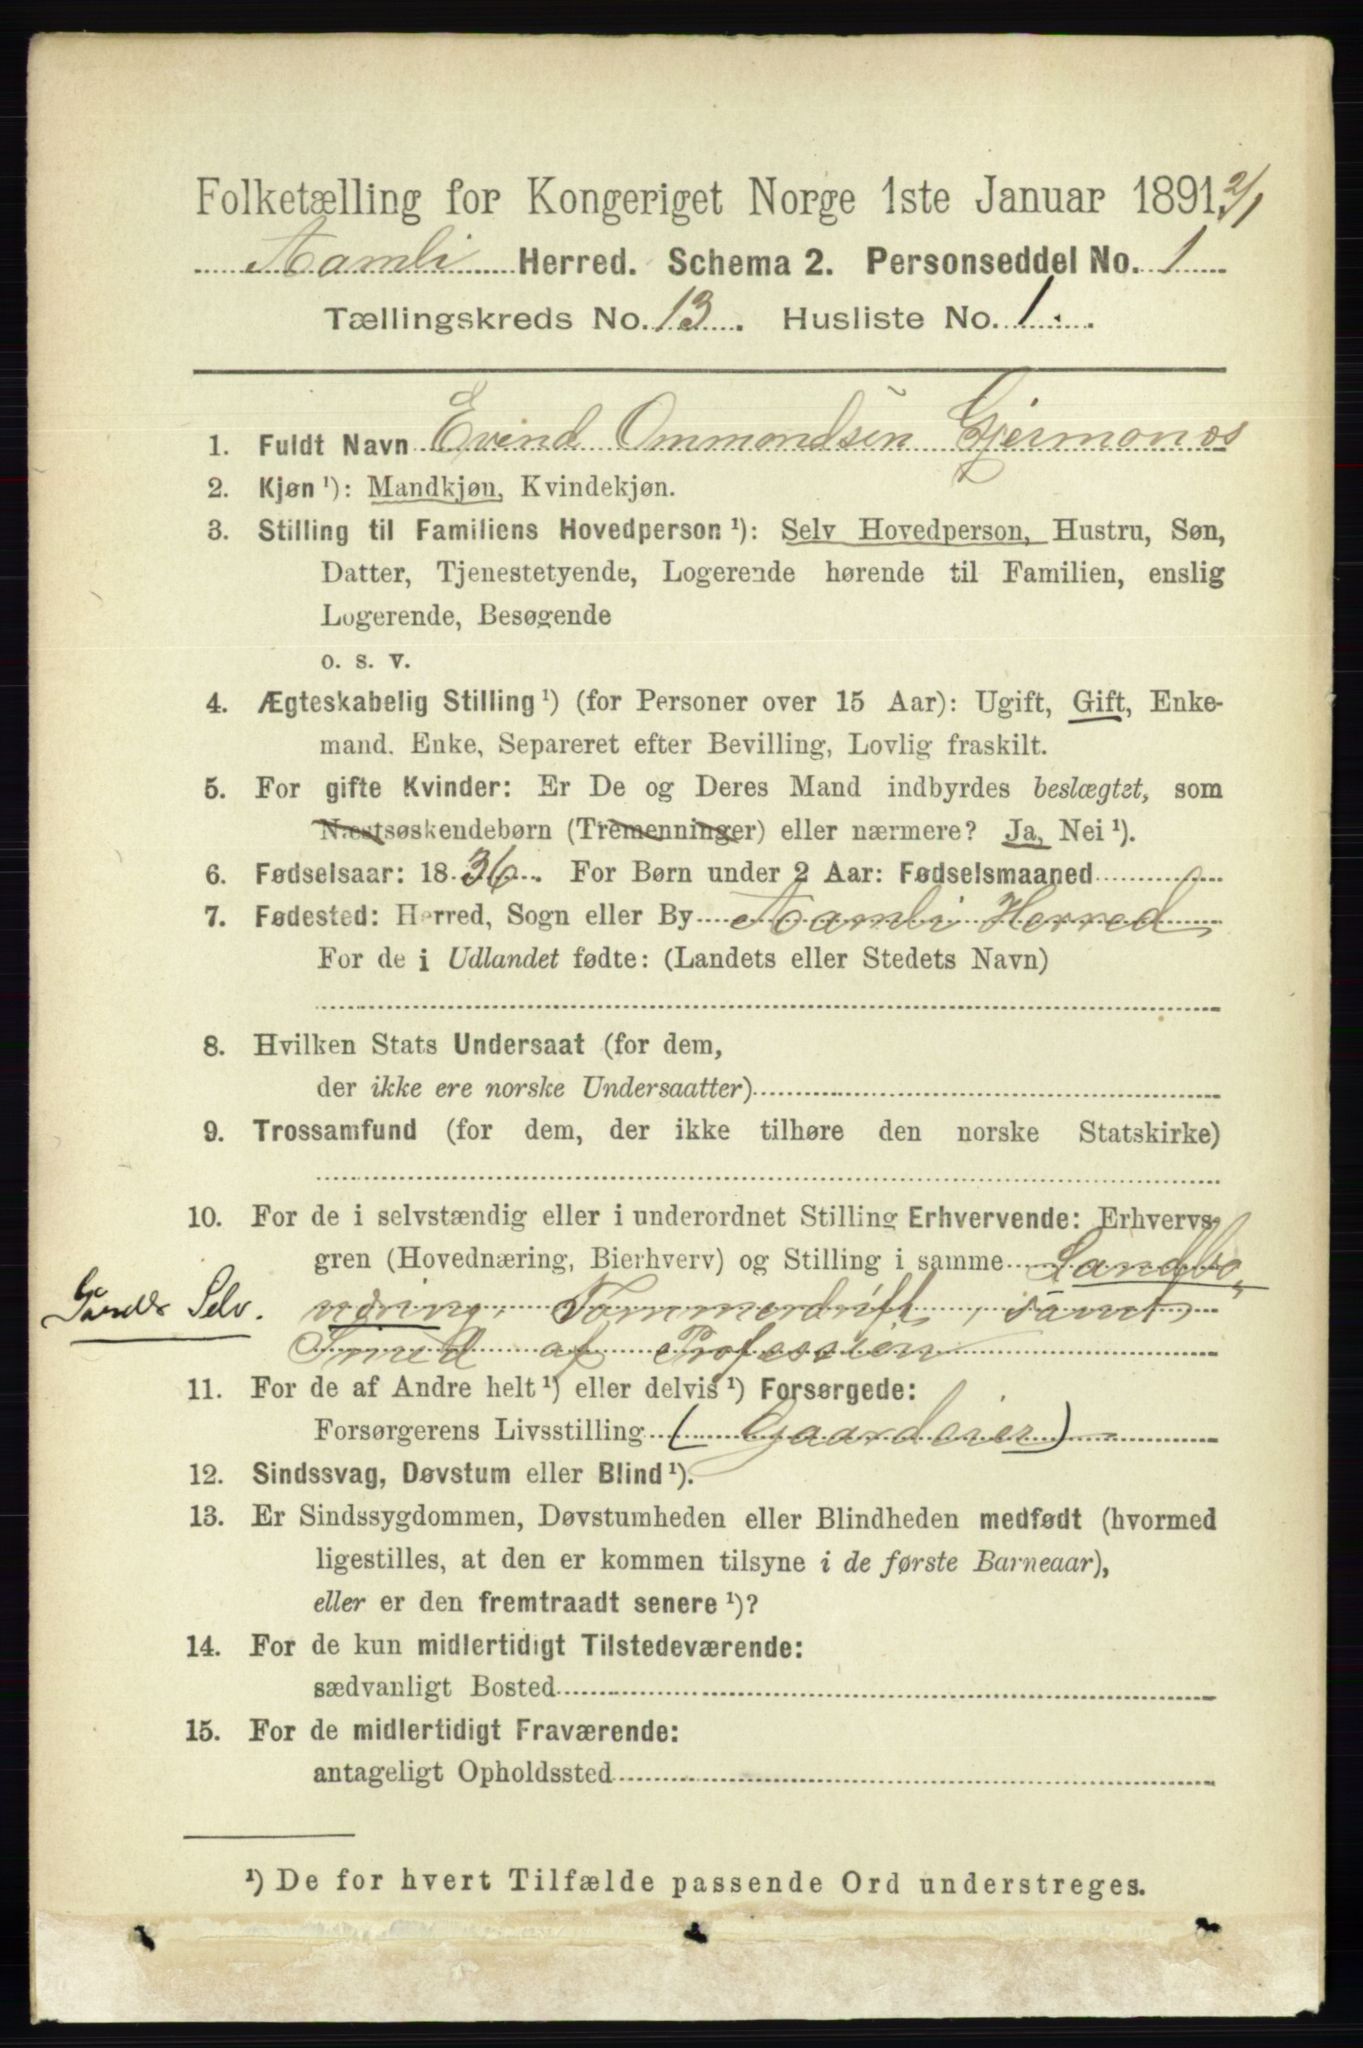 Folketælling for Kongeriget Norge 1ste Januar 1891. 2/1
Aamli Herred. Schema 2. Personseddel No. 1
Tællingskreds No. 13. Husliste No. 1.
1. Fuldt Navn Evind Ommondsen Gjermonæs
2. Kjøn ¹): Mandkjøn, Kvindekjøn.
3. Stilling til Familiens Hovedperson ¹): Selv Hovedperson, Hustru, Søn,
Datter, Tjenestetyende, Logerende hørende til Familien, enslig
Logerende, Besøgende
o. s. v.
4. Ægteskabelig Stilling ¹) (for Personer over 15 Aar): Ugift, Gift, Enke-
mand. Enke, Separeret efter Bevilling, Lovlig fraskilt.
5. For gifte Kvinder: Er De og Deres Mand indbyrdes beslægtet, som
Næstsøskendebørn (Tremenninger) eller nærmere? Ja, Nei ¹).
6. Fødselsaar: 1836. For Børn under 2 Aar: Fødselsmaaned
7. Fødested: Herred, Sogn eller By Aamli Herred
For de i Udlandet fødte: (Landets eller Stedets Navn)
8. Hvilken Stats Undersaat (for dem,
der ikke ere norske Undersaatter)
9. Trossamfund (for dem, der ikke tilhøre den norske Statskirke)
10. For de i selvstændig eller i underordnet Stilling Erhvervende: Erhvervs-
gren (Hovednæring, Bierhverv) og Stilling i samme Landbo„
Selv. næring, Tømmerdrift, samt
Smed af Profession
11. For de af Andre helt ¹) eller delvis ¹) Forsørgede:
Forsørgerens Livsstilling (Gaardeier)
12. Sindssvag, Døvstum eller Blind ¹).
13. Er Sindssygdommen, Døvstumheden eller Blindheden medfødt (hvormed
ligestilles, at den er kommen tilsyne i de første Barneaar),
eller er den fremtraadt senere ¹)?
14. For de kun midlertidigt Tilstedeværende:
sædvanligt Bosted
15. For de midlertidigt Fraværende:
antageligt Opholdssted
¹) De for hvert Tilfælde passende Ord understreges.